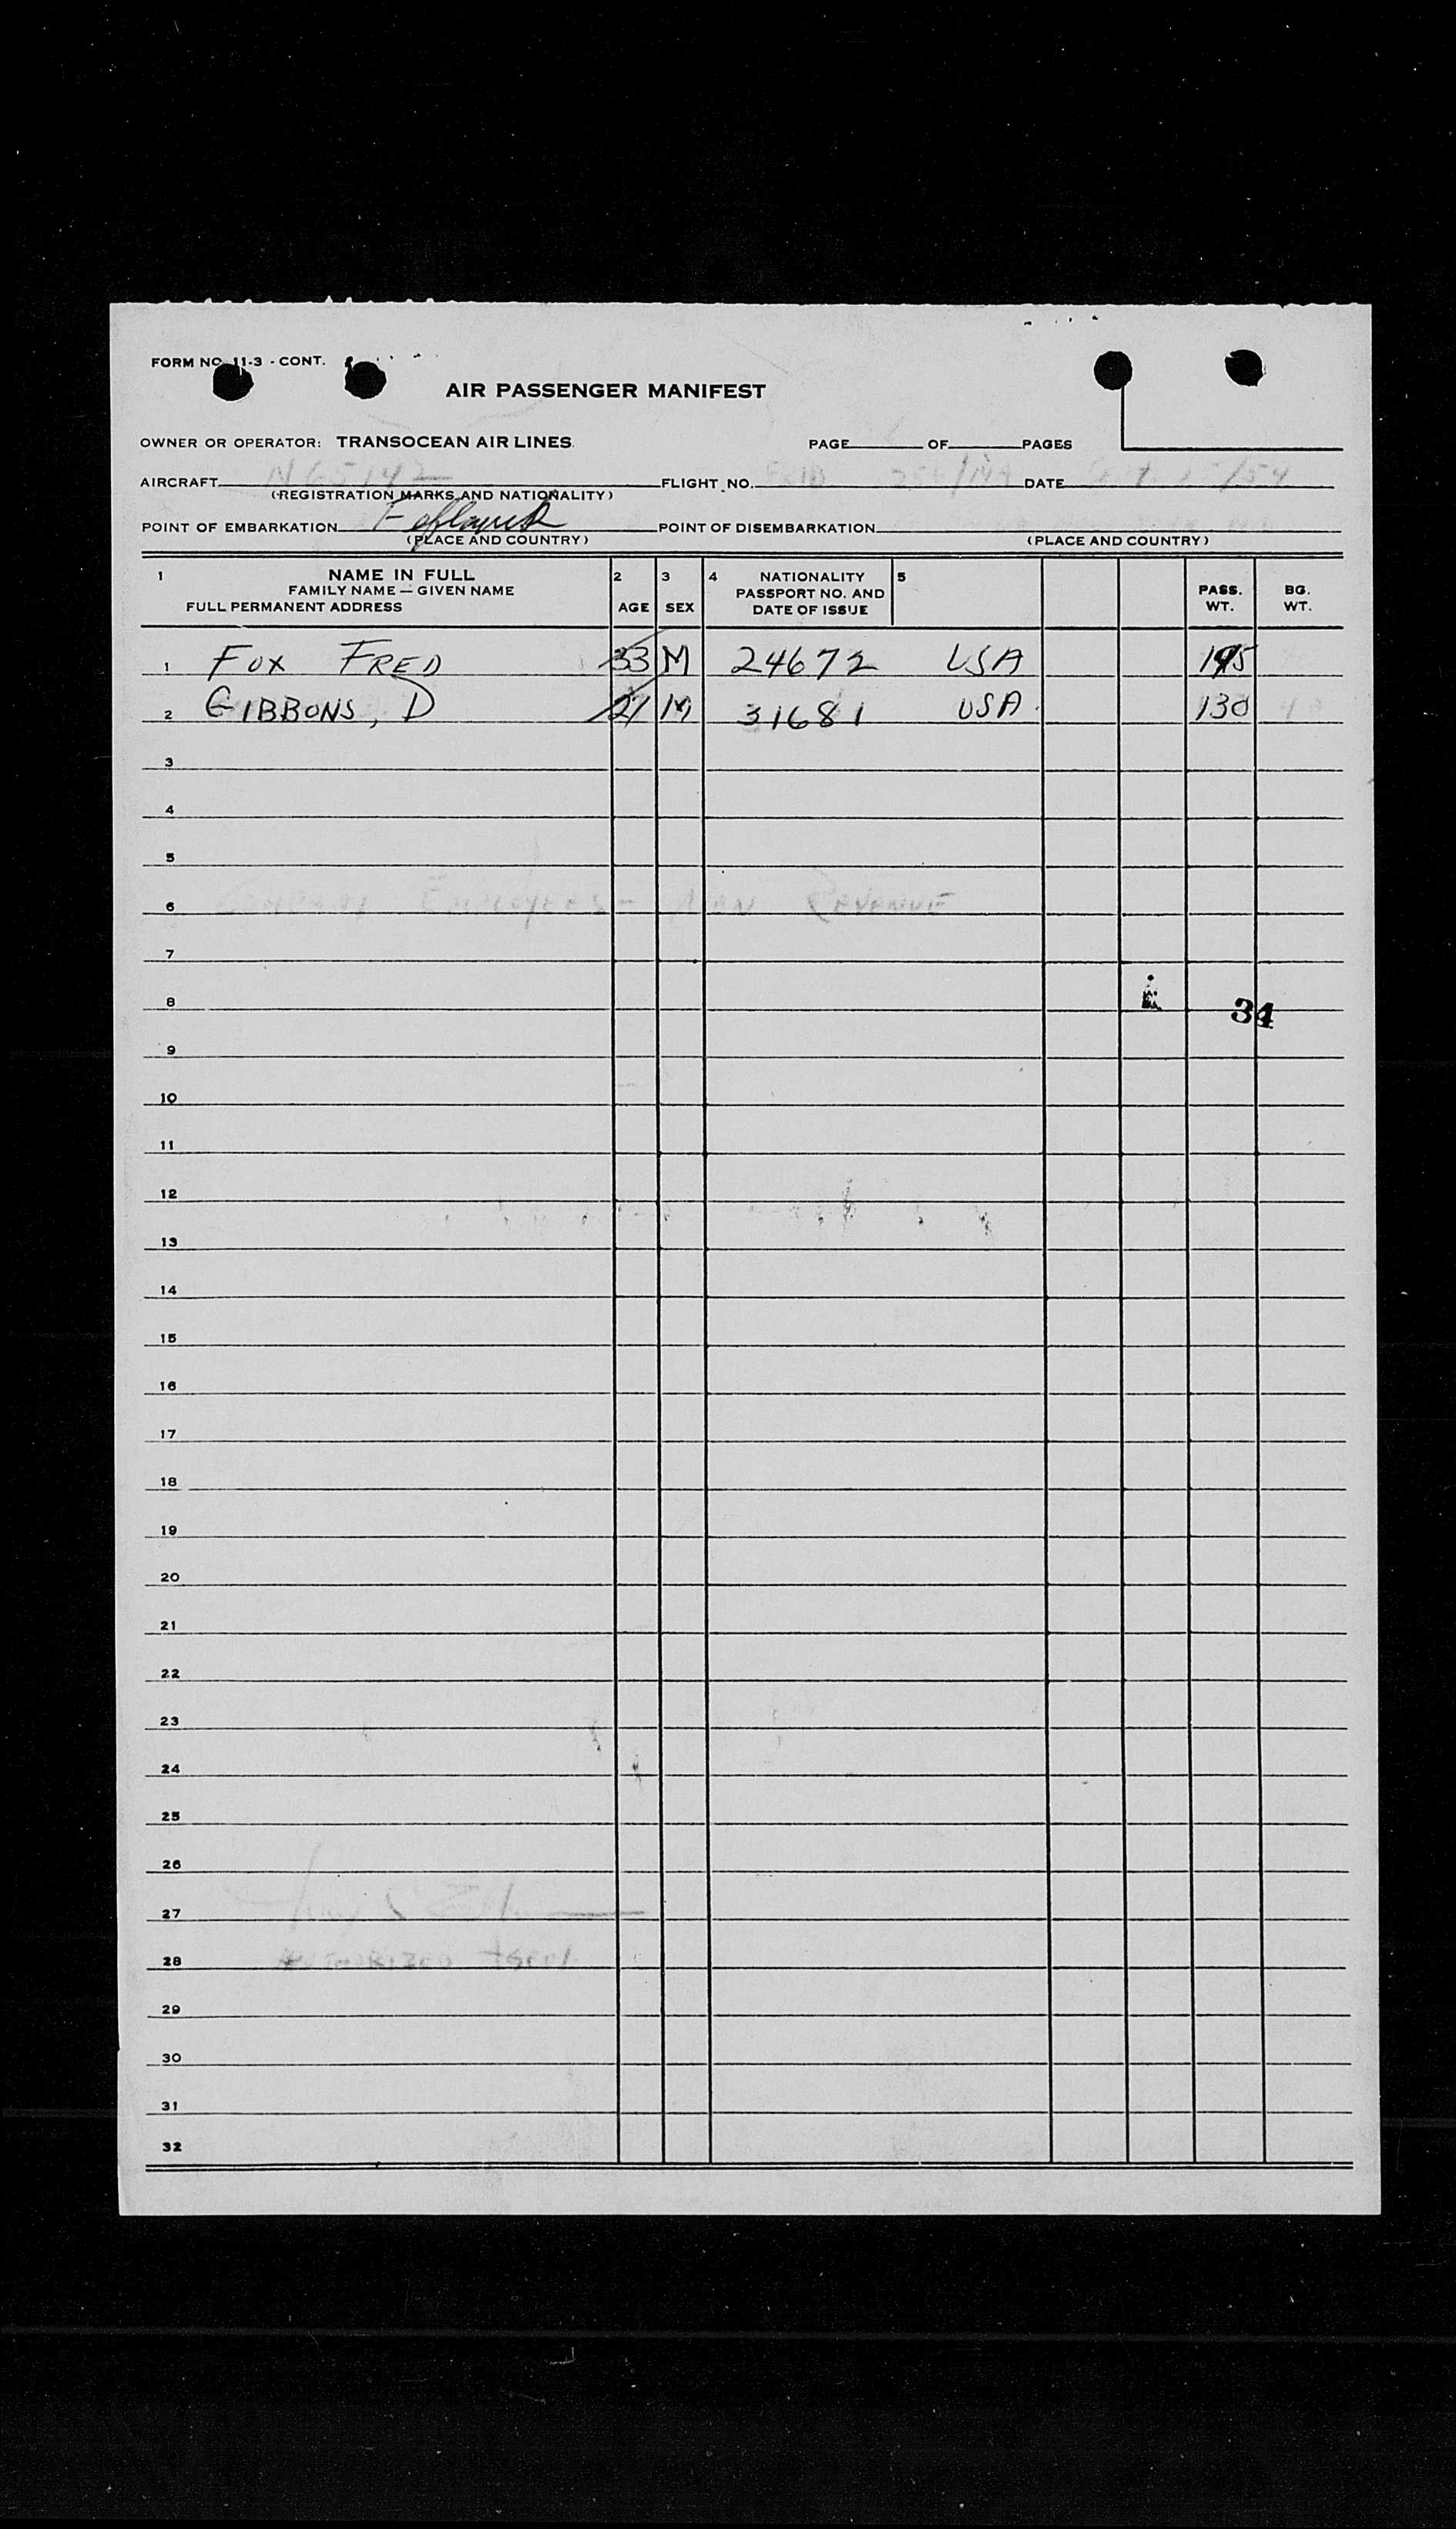 FORM NO. 11-3 - CONT.
AIR PASSENGER MANIFEST
OWNER OR OPERATOR: TRANSOCEAN AIR LINES. PAGE OF PAGES
AIRCRAFT N65142 FLIGHT NO. DATE /54
(REGISTRATION MARKS AND NATIONALITY)
POINT OF EMBARKATION POINT OF DISEMBARKATION
(PLACE AND COUNTRY) (PLACE AND COUNTRY)
1 NAME IN FULL 2 3 4 NATIONALITY 5
FAMILY NAME — GIVEN NAME PASSPORT NO. AND PASS. BG.
FULL PERMANENT ADDRESS AGE SEX DATE OF ISSUE WT. WT.
1 FOX FRED 33 M 24672 USA 195
2 GIBBONS, D 21 M 31681 USA 130
3
4
5
6 COMPANY EMPLOYEES - NON REVENUE
7
8 34
9
10
11
12
13
14
15
16
17
18
19
20
21
22
23
24
25
26
27
28 AUTHORIZED AGENT
29
30
31
32